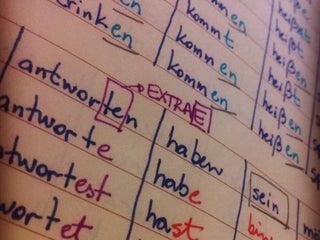 trinken
kommen
kommt
kommen
kommen
heißt
heißen
heißt
heißen
heißen
antworten
EXTRA E
antworte
ntwortest
wortet
haben
habe
hast
sein